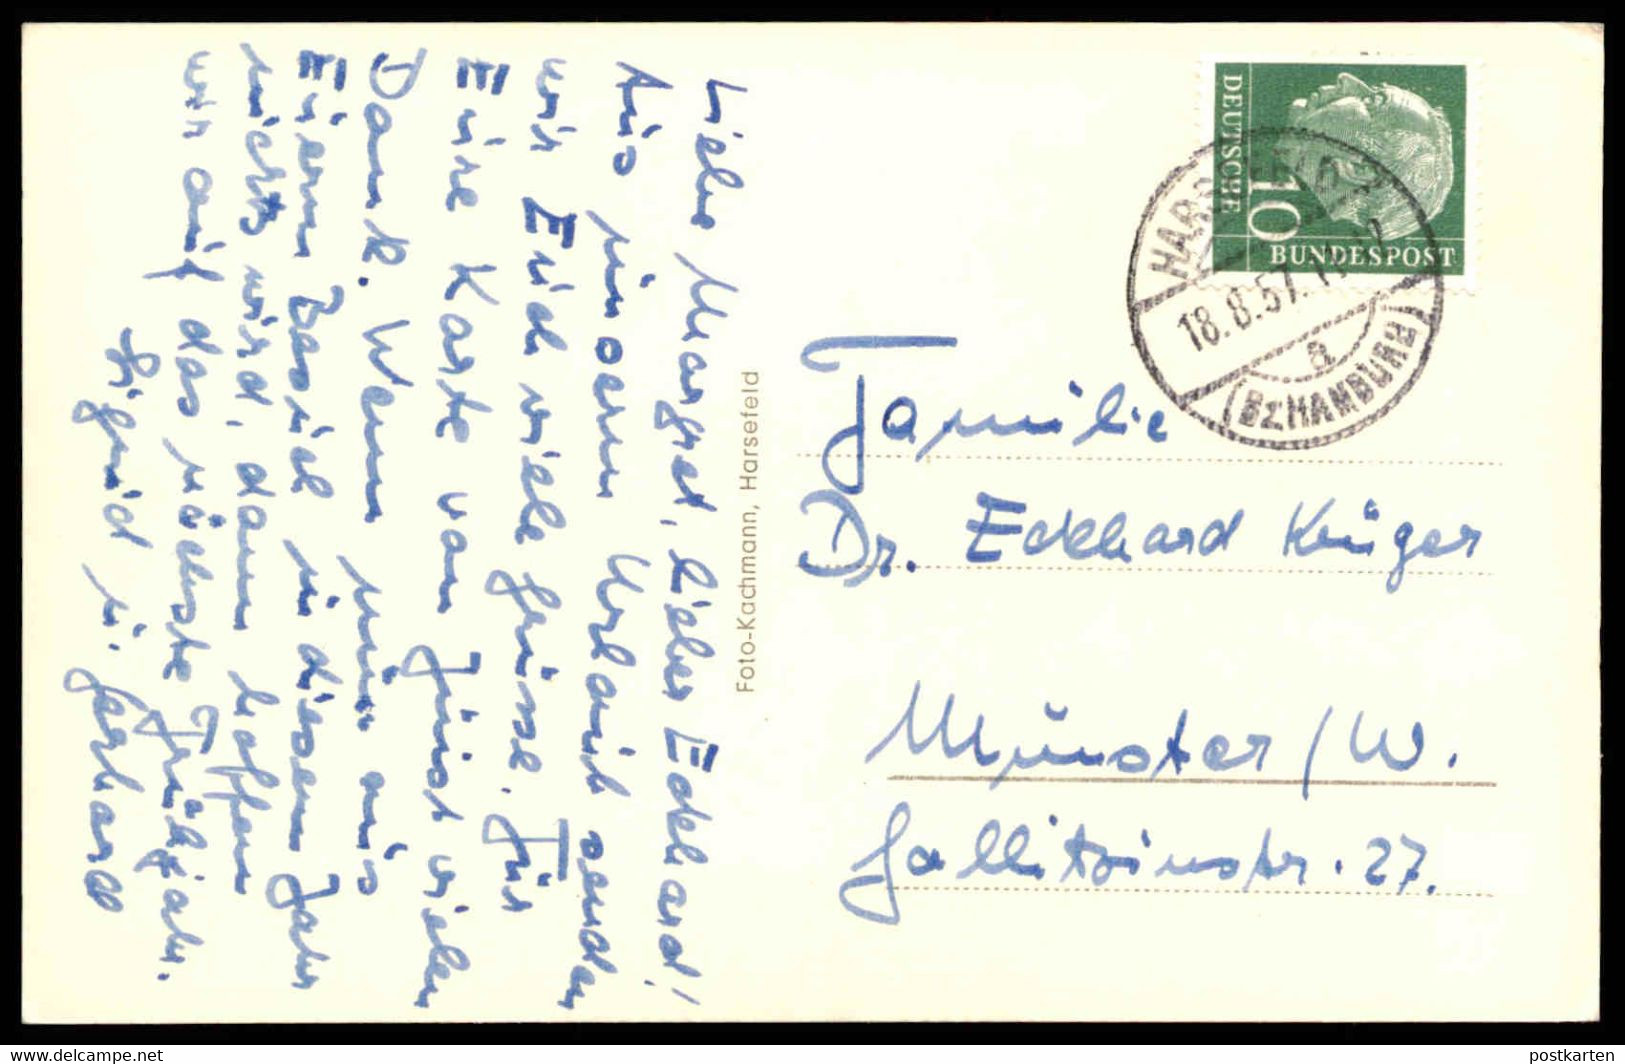 Liebe Margret, lieber Eckhard!
Aus unserm Urlaub senden
wir Euch viele Grüsse. Für
Eure Karte von Juist vielen
Dank. Wenn nun aus
Eurem Besuch in diesem Jahr
nichts wird, dann hoffen
wir auf das nächste Frühjahr.
Sigrid u. Gerhard
Foto-Kachmann, Harsefeld
DEUTSCHE
10
BUNDESPOST
18.8.57.
a
(Bz.HAMBURG)
Familie
Dr. Eckhard Krüger
Münster/W.
Gallitzinstr. 27.
www.delcampe.net
postkarten